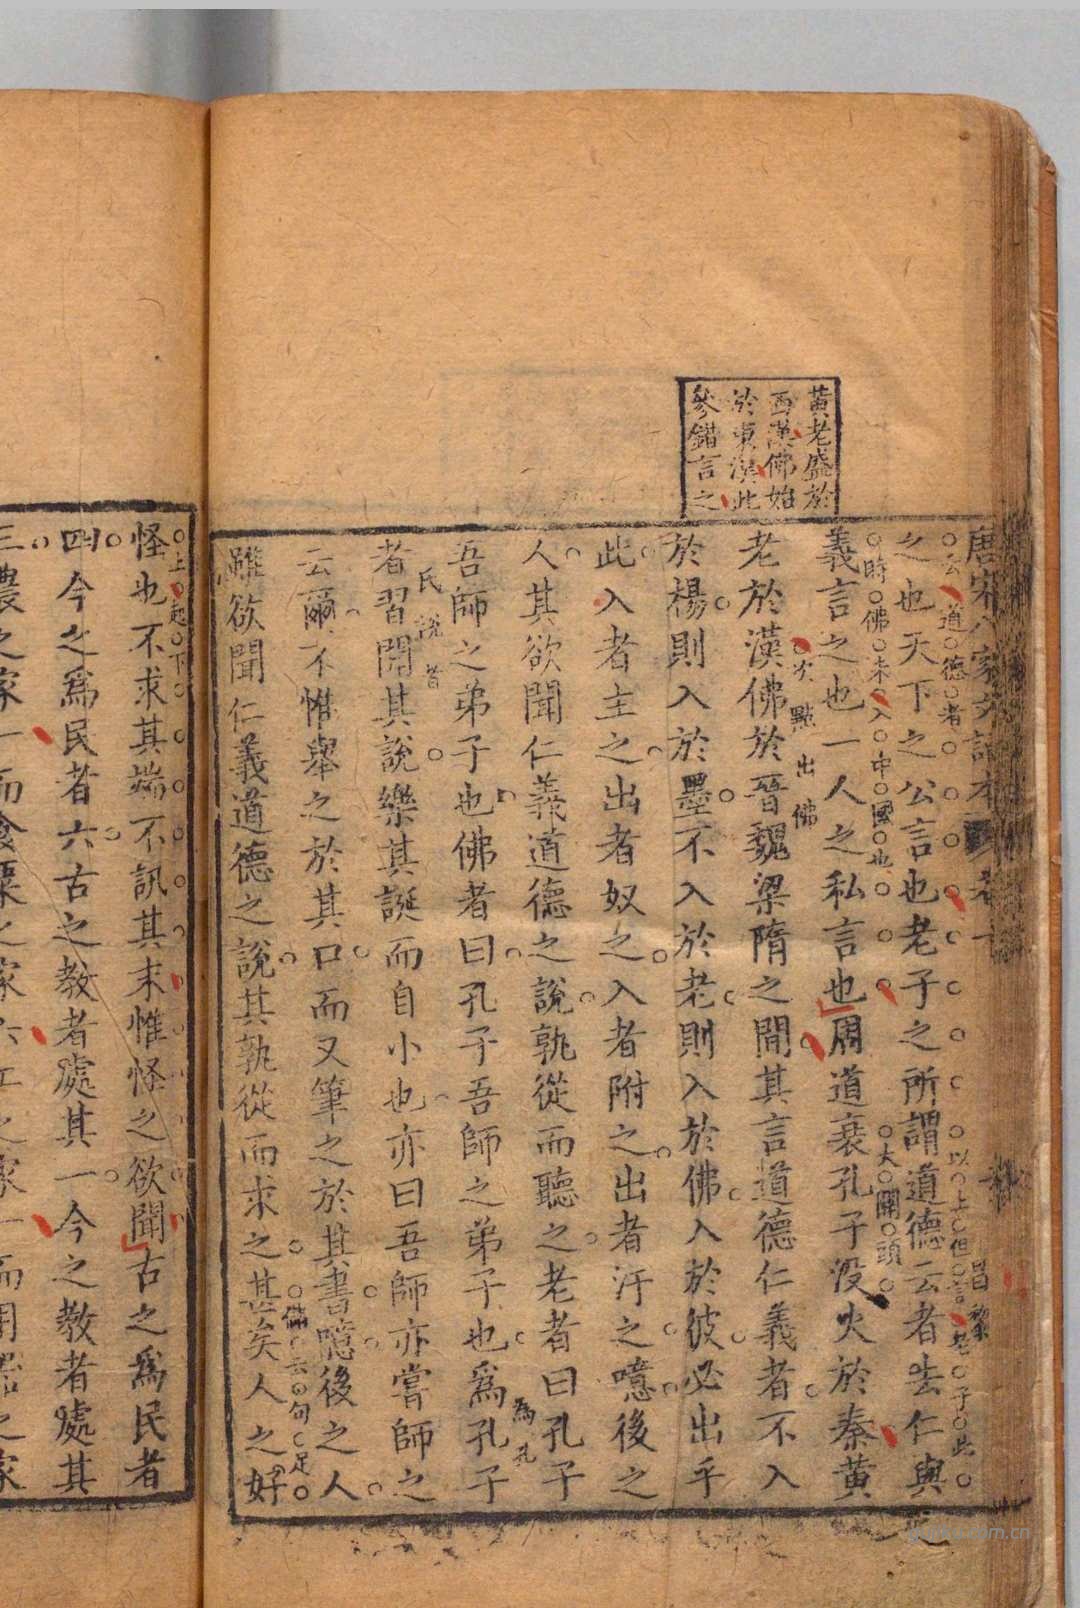 黃老盛於
西漢佛始
於東漢此
參錯言之
唐宋八家文讀本
卷一
昌黎
之也天下之公言也老子之所謂道德云者去仁與
云道德者
以上但言老子此
時佛未入中國也
大開頭
義言之也一人之私言也周道衰孔子没火於秦黃
老於漢佛於晉魏梁隋之間其言道德仁義者不入
次點出佛
於楊則入於墨不入於老則入於佛入於彼必出乎
此入者主之出者奴之入者附之出者汙之噫後之
人其欲聞仁義道德之說孰從而聽之老者曰孔子
吾師之弟子也佛者曰孔子吾師之弟子也爲孔子
為孔
氏說者
者習聞其說樂其誕而自小也亦曰吾師亦嘗師之
云爾不惟舉之於其口而又筆之於其書噫後之人
雖欲聞仁義道德之說其孰從而求之甚矣人之好
佛云句足
上起下
怪也不求其端不訊其末惟怪之欲聞古之爲民者
四今之爲民者六古之教者處其一今之教者處其
三農之家一而食粟之家六工之家一而用器之家